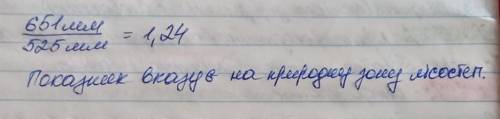 651мм
525мм = 1,24
Показник вказує на природну зону лісостеп.